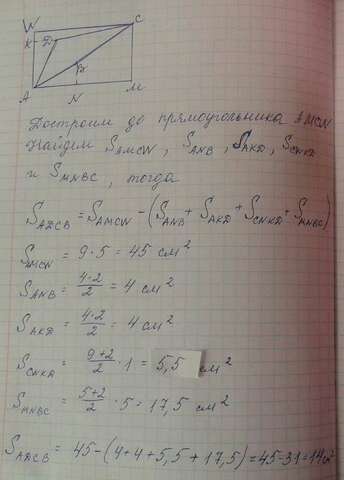 W C
K D
B
A N M
Достроим до прямоугольника AMCW
Найдем S_AMCW, S_ANB, S_AKD, S_CWKD
и S_MNBC, тогда
S_ADCB = S_AMCW - (S_ANB + S_AKD + S_CWKD + S_MNBC)
S_AMCW = 9 · 5 = 45 см²
S_ANB = 4·2/2 = 4 см²
S_AKD = 4·2/2 = 4 см²
S_CWKD = 9+2/2 · 1 = 5,5 см²
S_MNBC = 5+2/2 · 5 = 17,5 см²
S_ADCB = 45-(4+4+5,5+17,5)=45-31=14см²